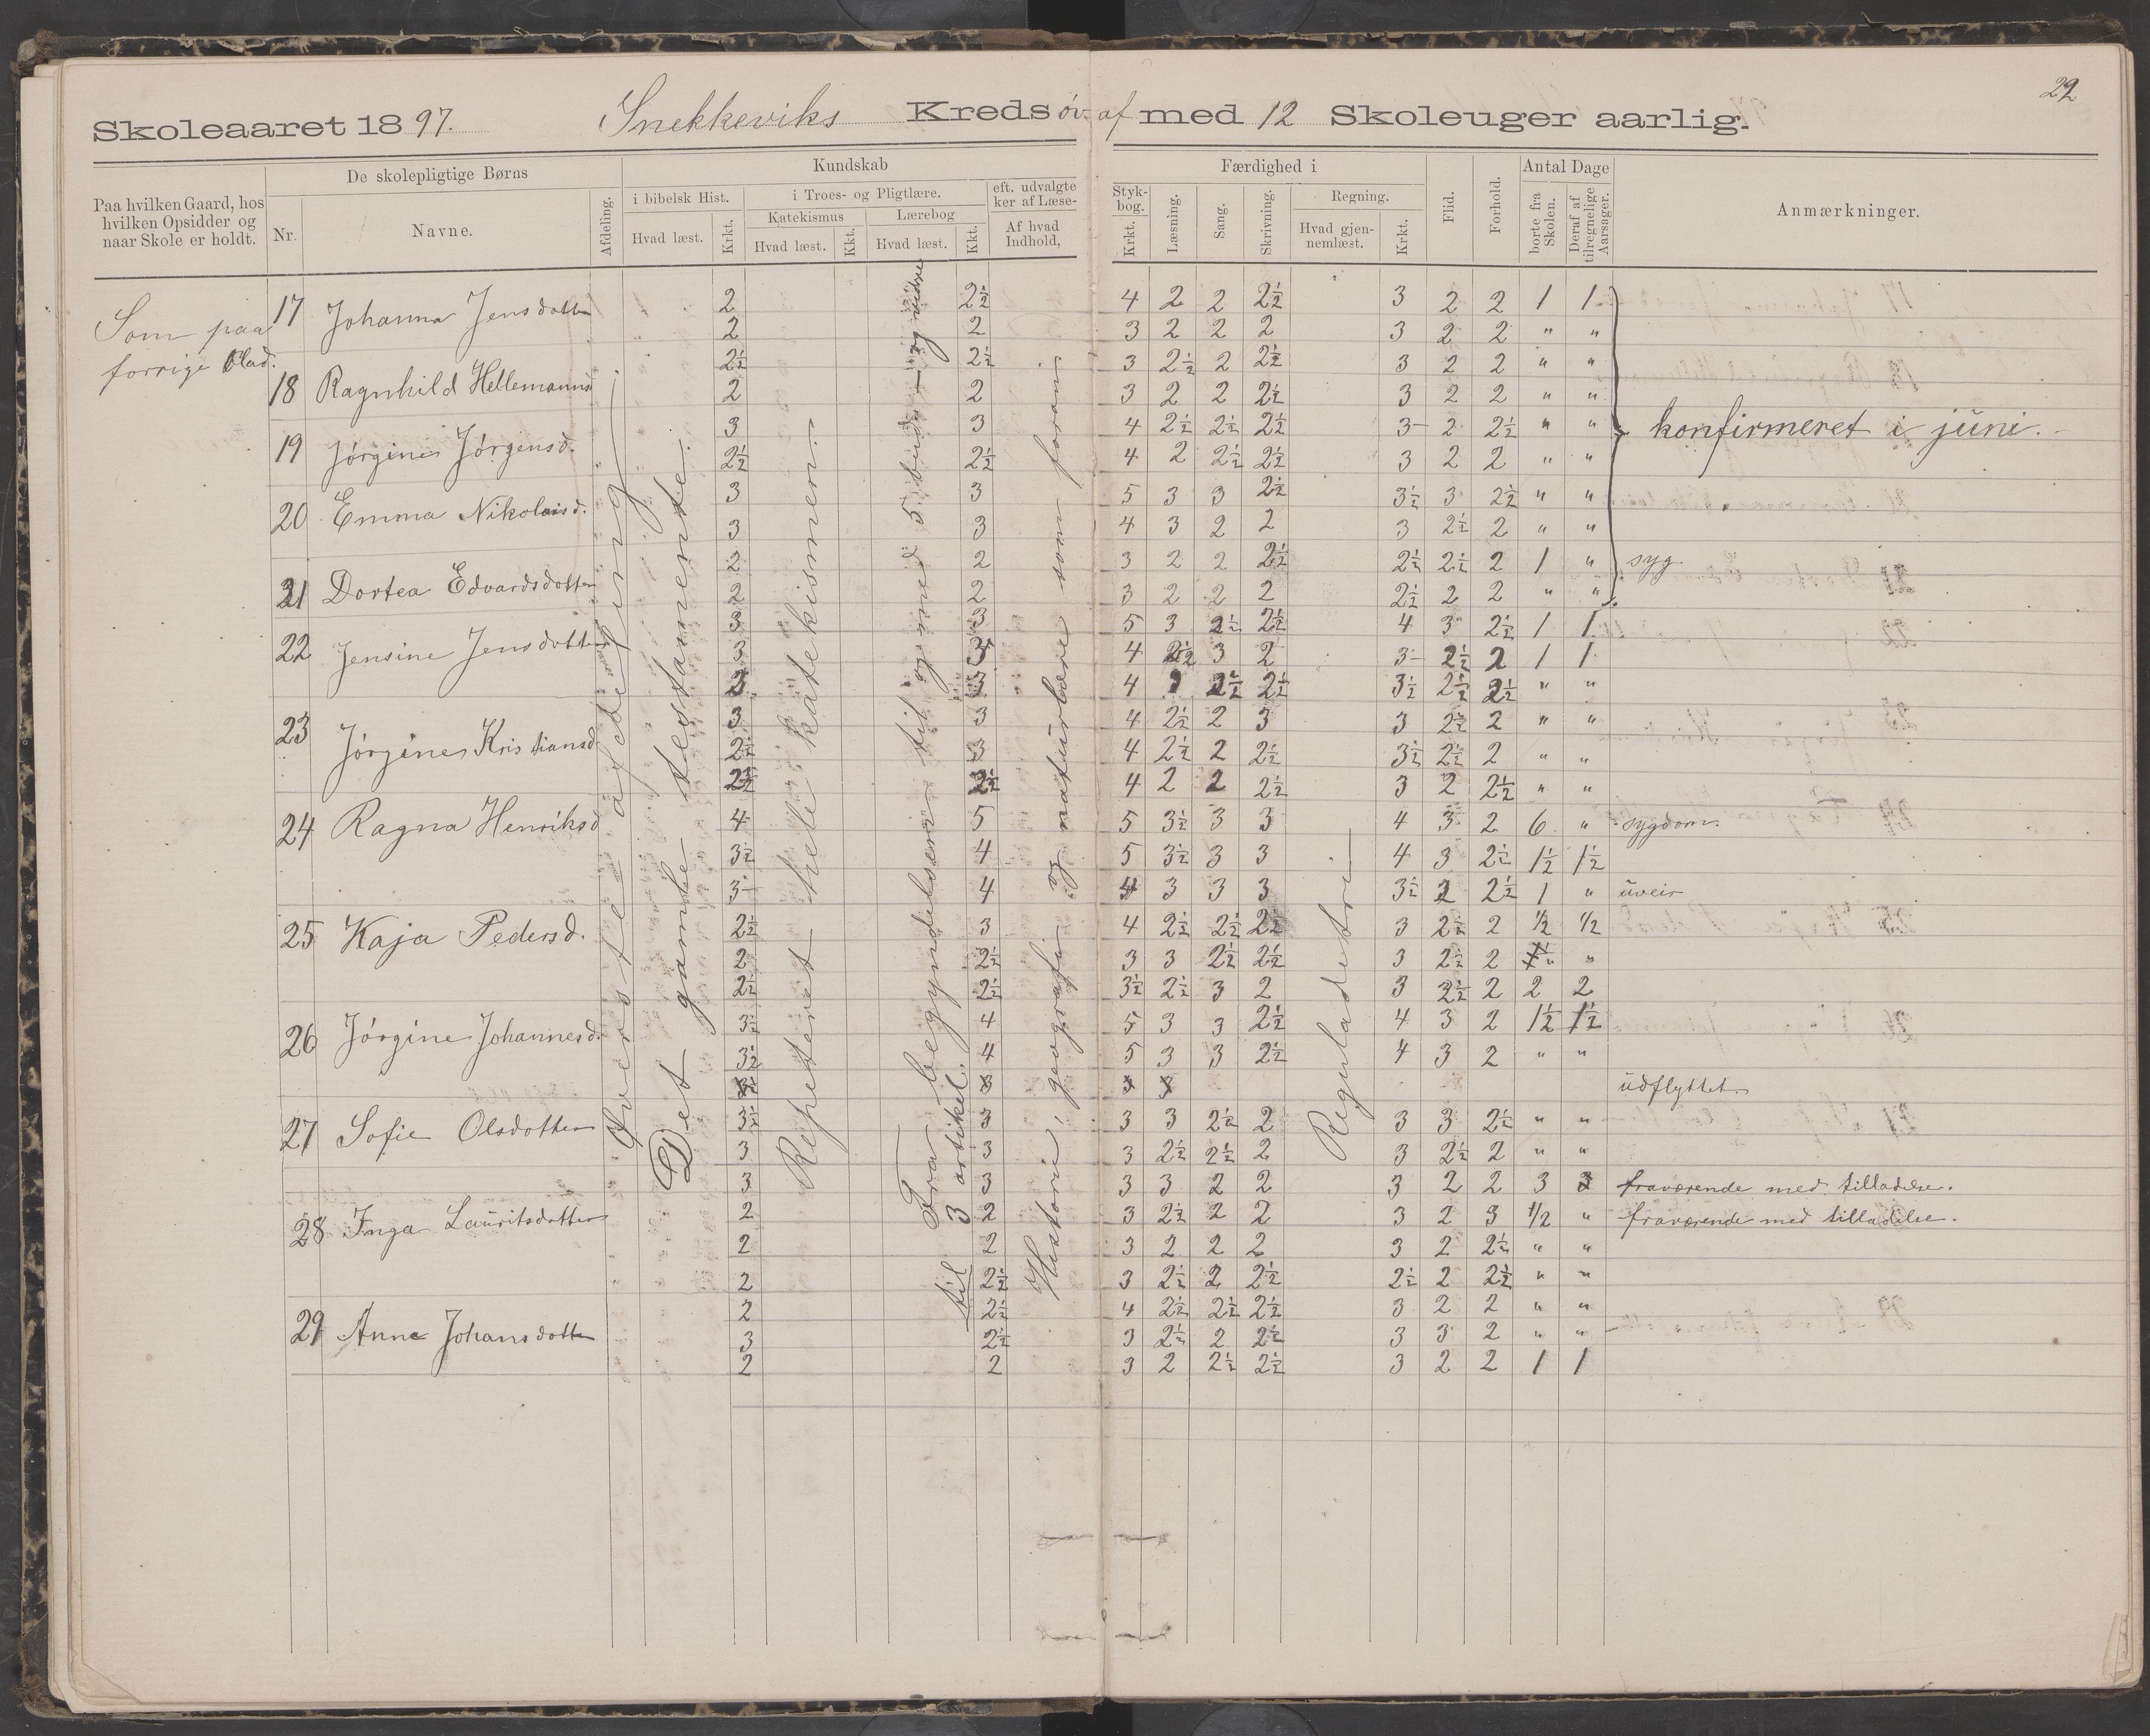 29
Skoleaaret 1897. Snekkeviks Kreds øv. af med 12 Skoleuger aarlig.
Paa hvilken Gaard, hos hvilken Opsidder og naar Skole er holdt.
De skolepligtige Børns
Nr.
Navne.
Afdeling.
Kundskab
i bibelsk Hist.
Hvad læst.
Krkt.
i Troes- og Pligtlære.
Katekismus
Hvad læst.
Kkt.
Lærebog
Hvad læst.
Kkt.
eft. udvalgte
ker af Læse-
Af hvad Indhold,
Styk-
bog.
Krkt.
Færdighed i
Læsning.
Sang.
Skrivning.
Regning.
Hvad gjen-
nemlæst.
Krkt.
Flid.
Forhold.
Antal Dage
borte fra Skolen.
Deraf af tilregnelige Aarsager.
Anmærkninger.
Som paa
forrige blad.
Øverste afdeling
Det gamle testamente.
Repeteret hele katekismen.
Fra begyndelsen til og med 5 bud og videre
til 3 artikel.
Historie, geografi og naturlære som foran.
Reguladetri
17 Johanna Jensdotter 2 2½ 4 2 2 2½ 3 2 2 1 1
2 2 3 2 2 2 3 2 2 " "
2½ 2½ 3 2½ 2 2½ 3 2 2 " "
18 Ragnhild Hellemanns 2 2 3 2 2 2½ 3 2 2 " "
3 3 4 2½ 2½ 2½ 3 2 2½ " " konfirmeret i juni.
19 Jørgine Jørgensd. 2½ 2½ 4 2 2½ 2½ 3 2 2 " "
3 3 5 3 3 2½ 3½ 3 2½ " "
20 Emma Nikolaisd. 3 3 4 3 2 2 3 2½ 2 " "
2 2 3 2 2 2½ 2½ 2½ 2 1 " syg.
21 Dortea Edvardsdotter 2 2 3 2 2 2 2½ 2 2 " "
3 3 5 3 2½ 2½ 4 3 2½ 1 1
22 Jensine Jensdotter 3 3 4 2½ 3 2 3 2½ 2 1 1
3 3 4 3 2½ 2½ 3½ 2½ 2½ " "
23 Jørgine Kristiansd. 3 3 4 2½ 2 3 3 2½ 2 " "
2½ 3 4 2½ 2 2½ 3½ 2½ 2 " "
2½ 2½ 4 2 2 2½ 3 2 2½ " "
24 Ragna Henriksd 4 5 5 3½ 3 3 4 3 2 6 " sygdom.
3½ 4 5 3½ 3 3 4 3 2½ 1½ 1½
3 4 4 3 3 3 3½ 2 2½ 1 " uveir
25 Kaja Pedersd. 2½ 3 4 2½ 2½ 2½ 3 2½ 2 1/2 1/2
2 2½ 3 3 2½ 2½ 3 2½ 2 " "
2½ 2½ 3½ 2½ 3 2 3 2½ 2 2 2
26 Jørgine Johannesd. 3½ 4 5 3 3 2½ 4 3 2 1½ 1½
3½ 4 5 3 3 2½ 4 3 2 " "
udflyttet.
27 Sofie Olsdotter 3½ 3 3 3 2½ 2 3 3 2½ " "
3 3 3 2½ 2½ 2 3 2½ 2 " "
3 3 3 3 2 2 3 2 2 3 3 fraværende med tilladelse.
28 Inga Lauritsdotter 2 2 3 2½ 2 2 3 2 3 1/2 " fraværende med tilladelse.
2 2 3 2 2 2 3 2 2½ " "
2 2½ 3 2½ 2 2½ 2½ 2 2½ " "
29 Anne Johansdotter 2 2½ 4 2½ 2½ 2½ 3 2 2 " "
3 2½ 3 2½ 2 2½ 3 3 2 " "
2 2 3 2 2½ 2½ 3 2 2 1 1